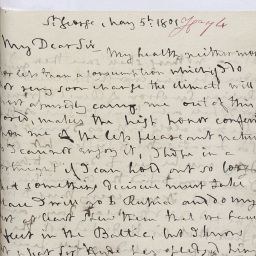 St George May 5th: 1801
My Dear Sir
My health neither more
or less than a consumption which if I do
very soon change the climate will
assuredly carry me out of this
world, makes the high honor confer
me the less pleasant
I cannot enjoy it, I hope in a
if I can hold out so long
something decisive must take
place I will go to and do my
at least shew them that we have
fleet in the Baltic, but I know
what Sir Hyde has